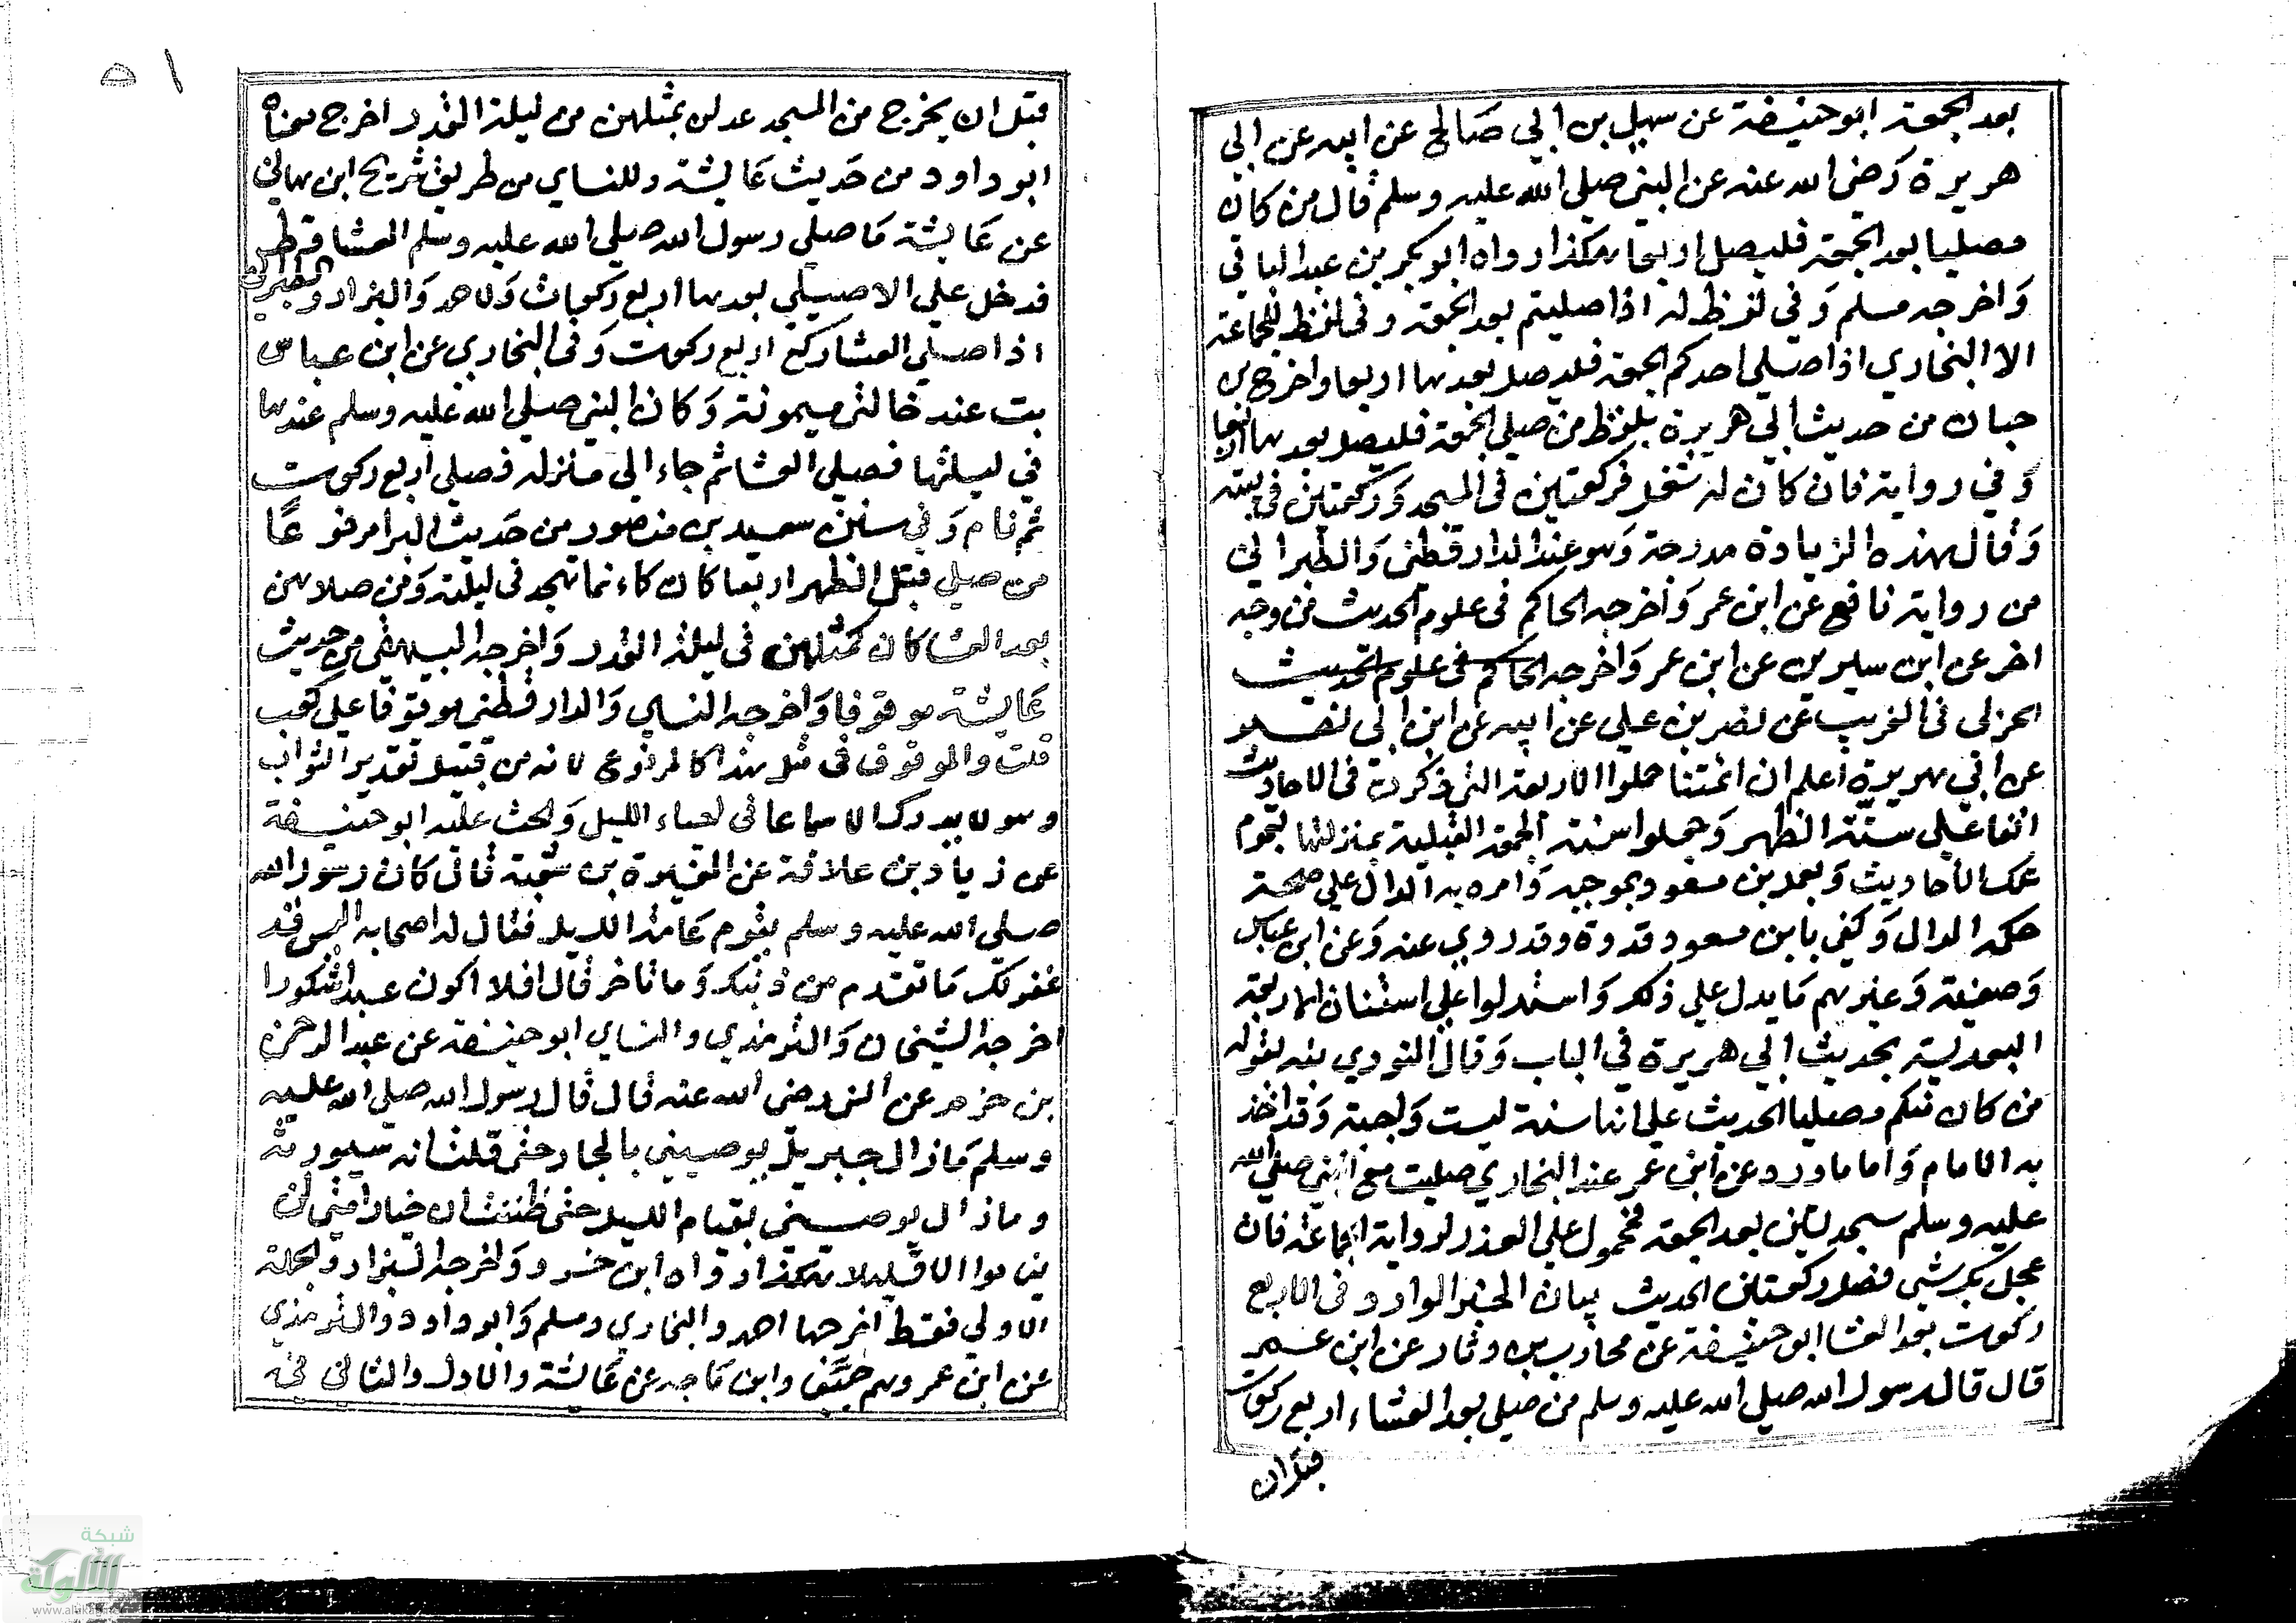 بعد الجمعة ابو حنيفة عن سهيل بن ابي صالح عن ابيه عن ابي
هريرة رضى الله عنه عن النبي صلى الله عليه وسلم قال من كان
مصليا بعد الجمعة فليصل اربعا هكذا رواه ابو بكر بن عبد الباقي
واخرجه مسلم وفي لفظ له اذا صليتم بعد الجمعة وفى لفظ للجماعة
الا البخاري اذا صلى احدكم الجمعة فليصل بعدها اربعا واخرج بن
حبان من حديث ابي هريرة بلفظ من صلى الجمعة فليصل بعدها اربعا
وفي رواية فان كان له شغل فركعتين فى المسجد وركعتين فى بيته
وقال هذه الزيادة مدرجة وهو عند الدارقطنى والطبراني
من رواية نافع عن ابن عمر واخرجه الحاكم فى علوم الحديث من وجه
اخر عن ابن سيرين عن ابن عمر واخرجه الحاكم فى علوم الحديث
الحربى فى الغريب عن نصر بن علي عن ابيه عن ابن ابى
عن ابي هريرة اعلم ان ائمتنا حملوا الاربعة التى ذكرت فى الاحاديث
انفا على سنة الظهر وجعلوا سنة الجمعة القبلية بمنزلتها لعموم
تلك الأحاديث وبعمل بن مسعود بموجبه وامره به الدال على صحة
حكم الدال وكفى بابن مسعود قدوة وقد روي عنه وعن ابن عباس
وصفية وغيرهم ما يدل على ذلك واستدلوا على استنان الاربعة
البعدية بحديث ابي هريرة في الباب وقال النووي نبه بقوله
من كان منكم مصليا الحديث على انها سنة ليست واجبة وقد اخذ
به الامام واما ما ورد عن ابن عمر عند البخاري صليت مع النبي صلى الله
عليه وسلم سجدتين بعد الجمعة فمحمول على العذر لرواية الجماعة فان
عجل بك شي فصل ركعتين الحديث بيان الخبر الوارد فى الاربع
ركعات بعد العشا ابو حنيفة عن محارب بن دثار عن ابن عمر
قال قال رسول الله صلى الله عليه وسلم من صلى بعد العشاء اربع ركعات
قبل ان
٥١
قبل ان يخرج من المسجد عدلن بمثلهن من ليلة القدر اخرج معناه
ابو داود من حديث عايشة وللنساي من طريق شريح ابن هاني
عن عايشة ما صلى رسول الله صلى الله عليه وسلم العشا قط
فدخل علي الا صلى بعدها اربع ركعات ولاحمد والبزار والطبراني
اذا صلى العشا ركع اربع ركعات وفى البخاري عن ابن عباس
بت عند خالتى ميمونة وكان النبي صلى الله عليه وسلم عندها
في ليلتها فصلى العشا ثم جاء الى منزله فصلى اربع ركعات
ثم نام وفي سنن سعيد بن منصور من حديث البرا مرفوعًا
من صلى قبل الظهر اربعا كان كانما تهجد فى ليلته ومن صلاهن
بعد العشا كان كمثلهن فى ليلة القدر واخرجه البيهقي من حديث
عايشة موقوفا واخرجه النساي والدارقطنى موقوفا على كعب
قلت والموقوف فى مثل هذا كالمرفوع لانه من قبيل تقدير الثواب
وهو لا يدرك الا سماعا فى احياء الليل والحث عليه ابو حنيفة
عن زياد بن علاقة عن المغيرة بن شعبة قال كان رسول الله
صلى الله عليه وسلم يقوم عامة الليل فقال له اصحابه اليس قد
غفر لك ما تقدم من ذنبك وما تاخر قال افلا اكون عبدا شكورا
اخرجه الشيخان والترمذي والنساي ابو حنيفة عن عبد الرحمن
بن حزم عن انس رضى الله عنه قال قال رسول الله صلى الله عليه
وسلم مازال جبريل يوصيني بالجار حتى قلت انه سيورثه
ومازال يوصيني بقيام الليل حتى ظننت ان خيار امتى لن
يناموا الا قليلا هكذا رواه ابن خسرو واخرجه البزار والجملة
الاولى فقط اخرجها احمد والبخاري ومسلم وابو داود والترمذي
عن ابن عمر وهم وابن ماجه عن عايشة والاول والثاني